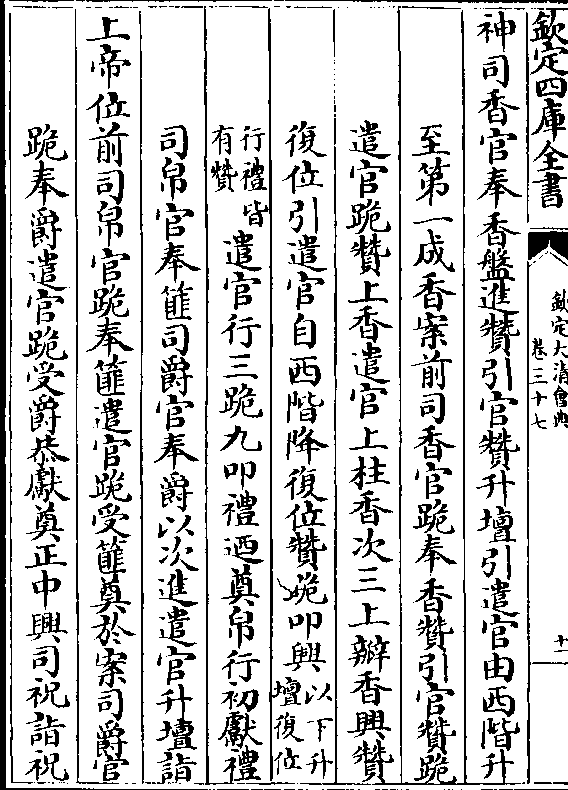 欽定四庫全書
欽定大清會典
卷三十七
十一
神司香官奉香盤進贊引官贊升壇引遣官由西階升
至第一成香案前司香官跪奉香贊引官贊跪
遣官跪贊上香遣官上柱香次三上瓣香興贊
復位引遣官自西階降復位贊跪叩興以下升壇復位
行禮皆有贊遣官行三跪九叩禮迺奠帛行初獻禮
司帛官奉篚司爵官奉爵以次進遣官升壇詣
上帝位前司帛官跪奉篚遣官跪受篚奠於案司爵官
跪奉爵遣官跪受爵恭獻奠正中興司祝詣祝